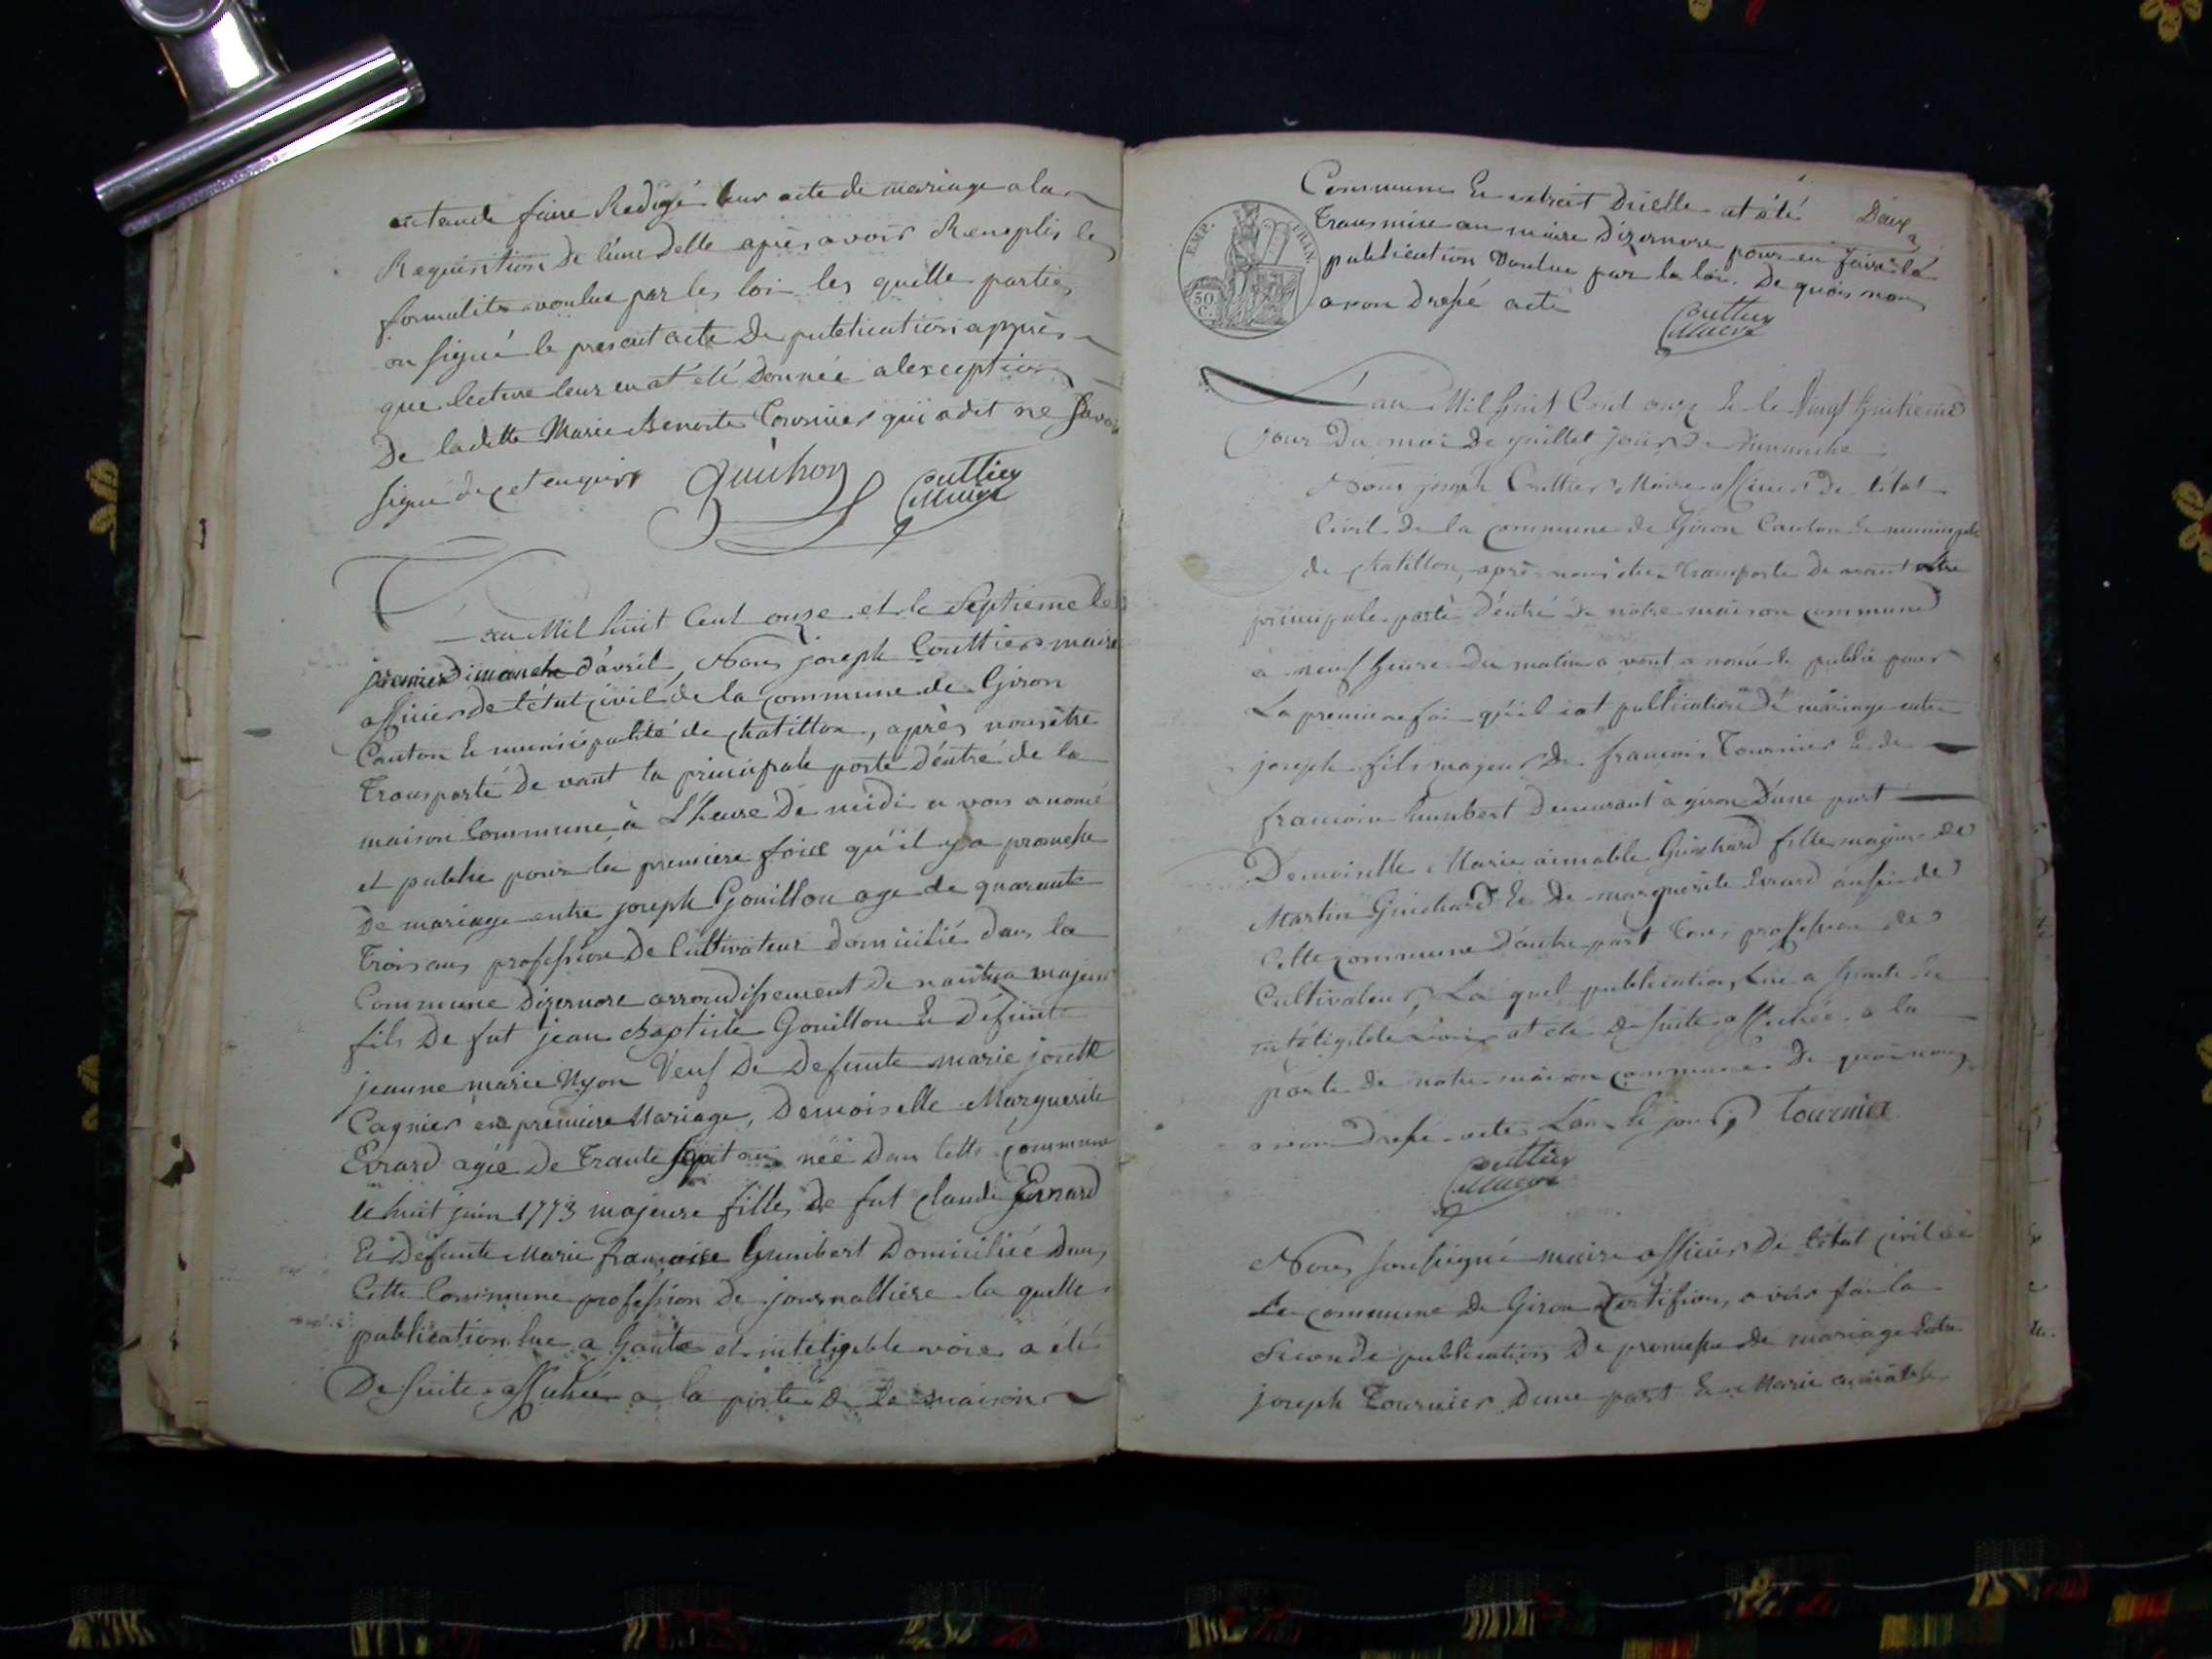 entende faire Redigé leur acte de mariage a la
Requisition de l'une delle après avoir Remplis les
formalites voulue par les loi les quelle parties
on signé le present acte de publication apprès
que lecture leur en at été Donnée a lexception
De ladette Marie Benoite Tournier qui a dit ne Savoir
signé de ce enquis Guichon Couttier Maire
L'an Mil huit Cent onze et le Septieme le
premier Dimanche d'avril, Nous joseph Couttier maire
officier de l'état civil de la commune de Giron
Canton & municipalité de chatillon, après nous être
Transporté de vant la principale porte d'éntré de la
maison Commune à L'heure de midi a vons anoncé
et publié pour la premiere foice qu'il y a promesse
De mariage entre joseph Gouillon age de quarante
Trois ans profession De Cultivateur Domicilié dans la
Commune Dizernore arrondissement de nantua majeur
fils De fut jean Baptiste Gouillon & défunte
jeanne marie Nyon Veuf De Defunte marie josette
Cagnier en premiere Mariage, Demoiselle Marguerite
Evrard agée De Trante Sept ans néé Dans Cette Commune
le huit juin 1773 majeure fille de fut Claude Evrard
Et Defunte Marie françoise Humbert Domiciliée Dans
Cette Commune profession De journalliére la quelle
publication lue a haute et inteligible voix a été
De suite affichée a la porte De la maison
Commune & extrait Dicelle at été
Deux
Transmise au maire Dizernore pour en faire la
publication voulue par la loi. De quoi nous
avon Dressé acte
Couttier Maire
EMP. FRAN.
50 C.
L'an Mil huit Cent onze & le Vingt huitieme
jour Du moi De juillet jour De Dimanche
Nous joseph Couttier Maire officier De l'état
Civil De la Commune de Giron Canton & municipalité
de chatillon, après nous être Transporte De avant notre
principale porte D'éntré De notre maison commune
à neuf heure Du matin a vont anoncé & publié pour
La premiere foi qu'il iat publication De mariage entre
joseph fils majeur De francois Tournier & de
francoise humbert Demeurant à giron D'une part
Demoiselle Marie aimable Guichard fille majeur de
Martin Guichard & De marguerite Evrard aussi de
Cette commune D'autre part Tous profession de
Cultivateur, La quel publication Lue a haute &
inteligible voix at été De suite affichée a la
porte De notre maison commune De quoi nous
avon Dressé acte L'an & jour Tournier
Couttier Maire
Nous soussigné maire officier De l'état civil de
la commune De Giron Certifion, avoir fai la
Seconde publication De promesse De mariage Entre
joseph Tournier D'une part & Marie aimable